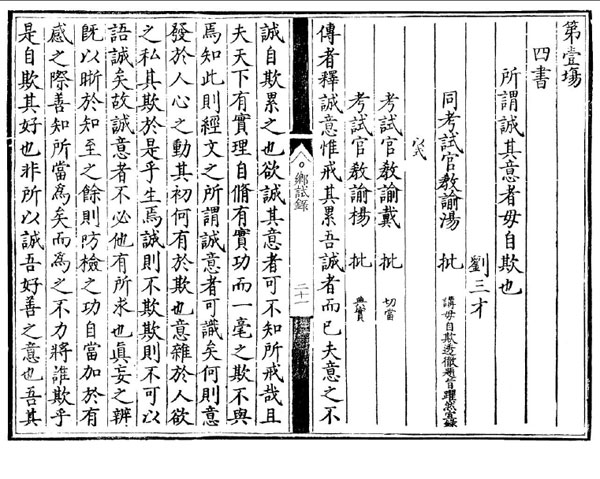 第壹塲
四書
所謂誠其意者毋自欺也
劉三才
同考試官教諭湯　批　講毋自欺透徹
以式
考試官教諭戴　批　切當
考試官教諭楊　批　典實
傳者釋誠意惟戒其累吾誠者而已夫意之不
鄉試錄
二十一
誠自欺累之也欲誠其意者可不知所戒哉且
夫天下有實理自脩有實功而一毫之欺不與
焉知此則經文之所謂誠意者可識矣何則意
發於人心之動其初何有於欺也意雜於人欲
之私其欺於是乎生焉誠則不欺欺則不可以
語誠矣故誠意者不必他有所求也眞妄之辨
既以晰於知至之餘則防檢之功自當加於有
感之際善知所當為矣而為之不力將誰欺乎
是自欺其好也非所以誠吾好善之意也吾其